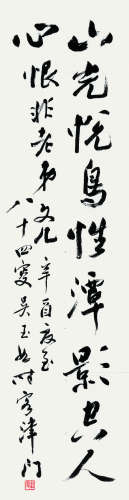 山光悦鳥性潭影空人
心 恨非老弟文几 辛酉夏至
八十四叟吴玉如时客津门